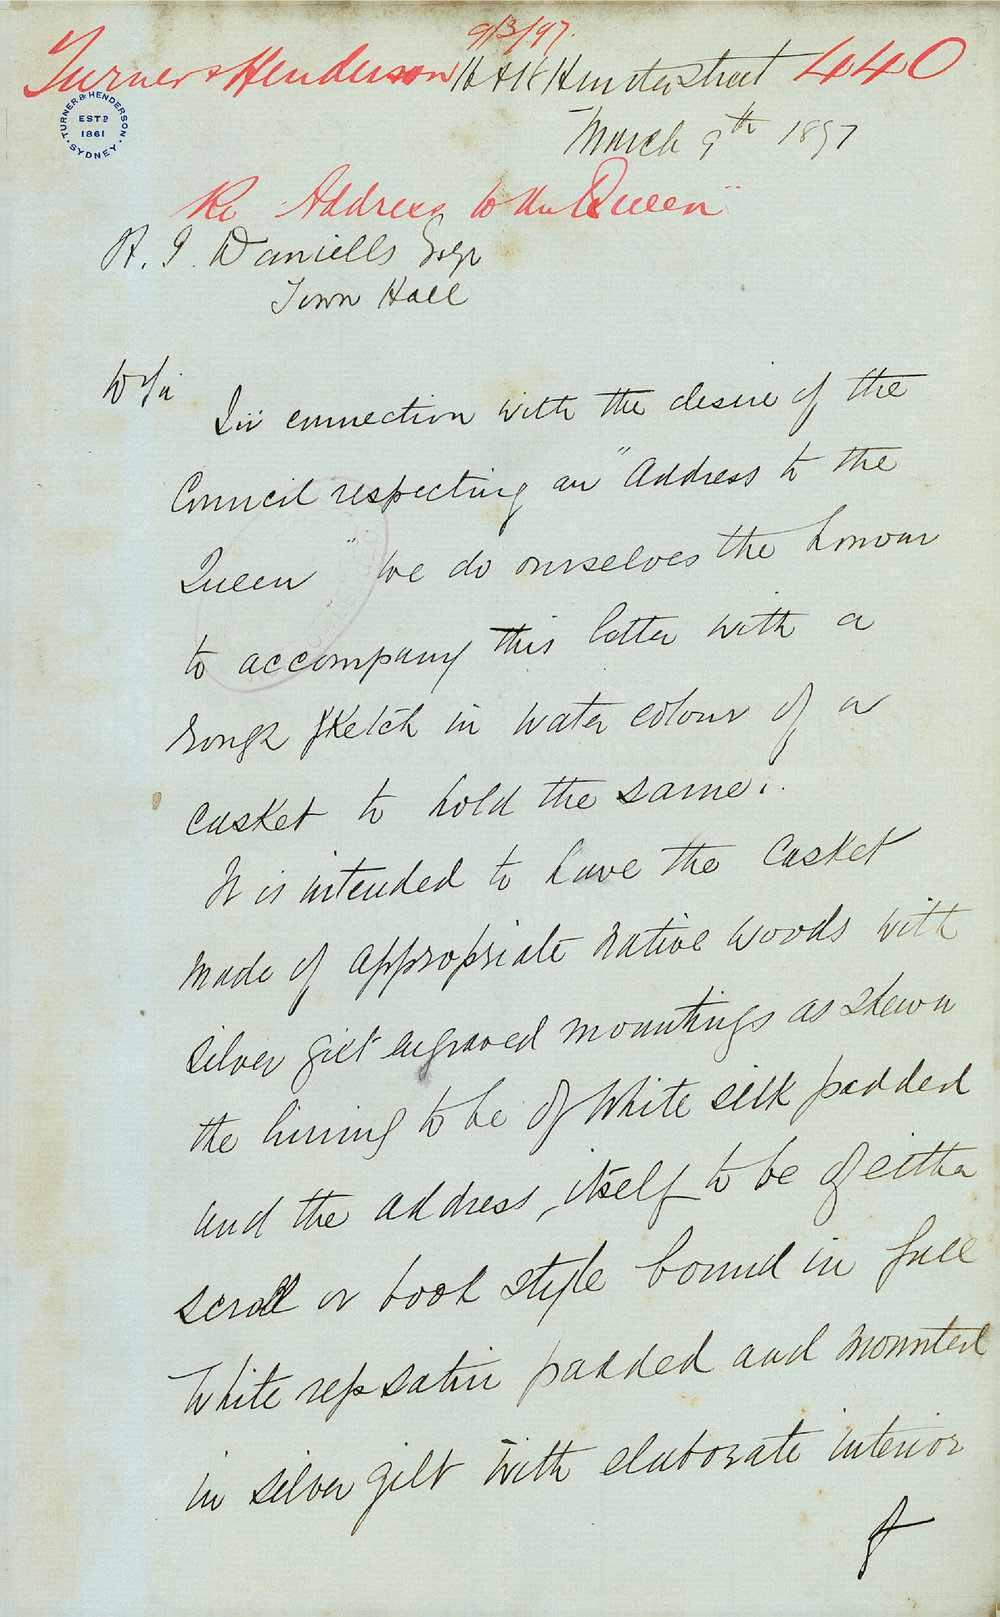 9/3/97.
Turner & Henderson 16 & 18 Hunter Street 440
TURNER & HENDERSON
ESTD
1861
SYDNEY
March 9th 1897
Re Address to the Queen"
H. J. Daniells Esqr
Town Hall
In connection with the desire of the
Council respecting an "Address to the
Queen" we do ourselves the honour
to accompany this letter with a
rough sketch in water colour of a
casket to hold the same.
It is intended to have the Casket
made of appropriate native woods with
silver gilt engraved mountings as shewn
the lining to be of White silk padded
and the address, itself to be of either
scroll or book style bound in full
White rep satin padded and mounted
in silver gilt with elaborate interior